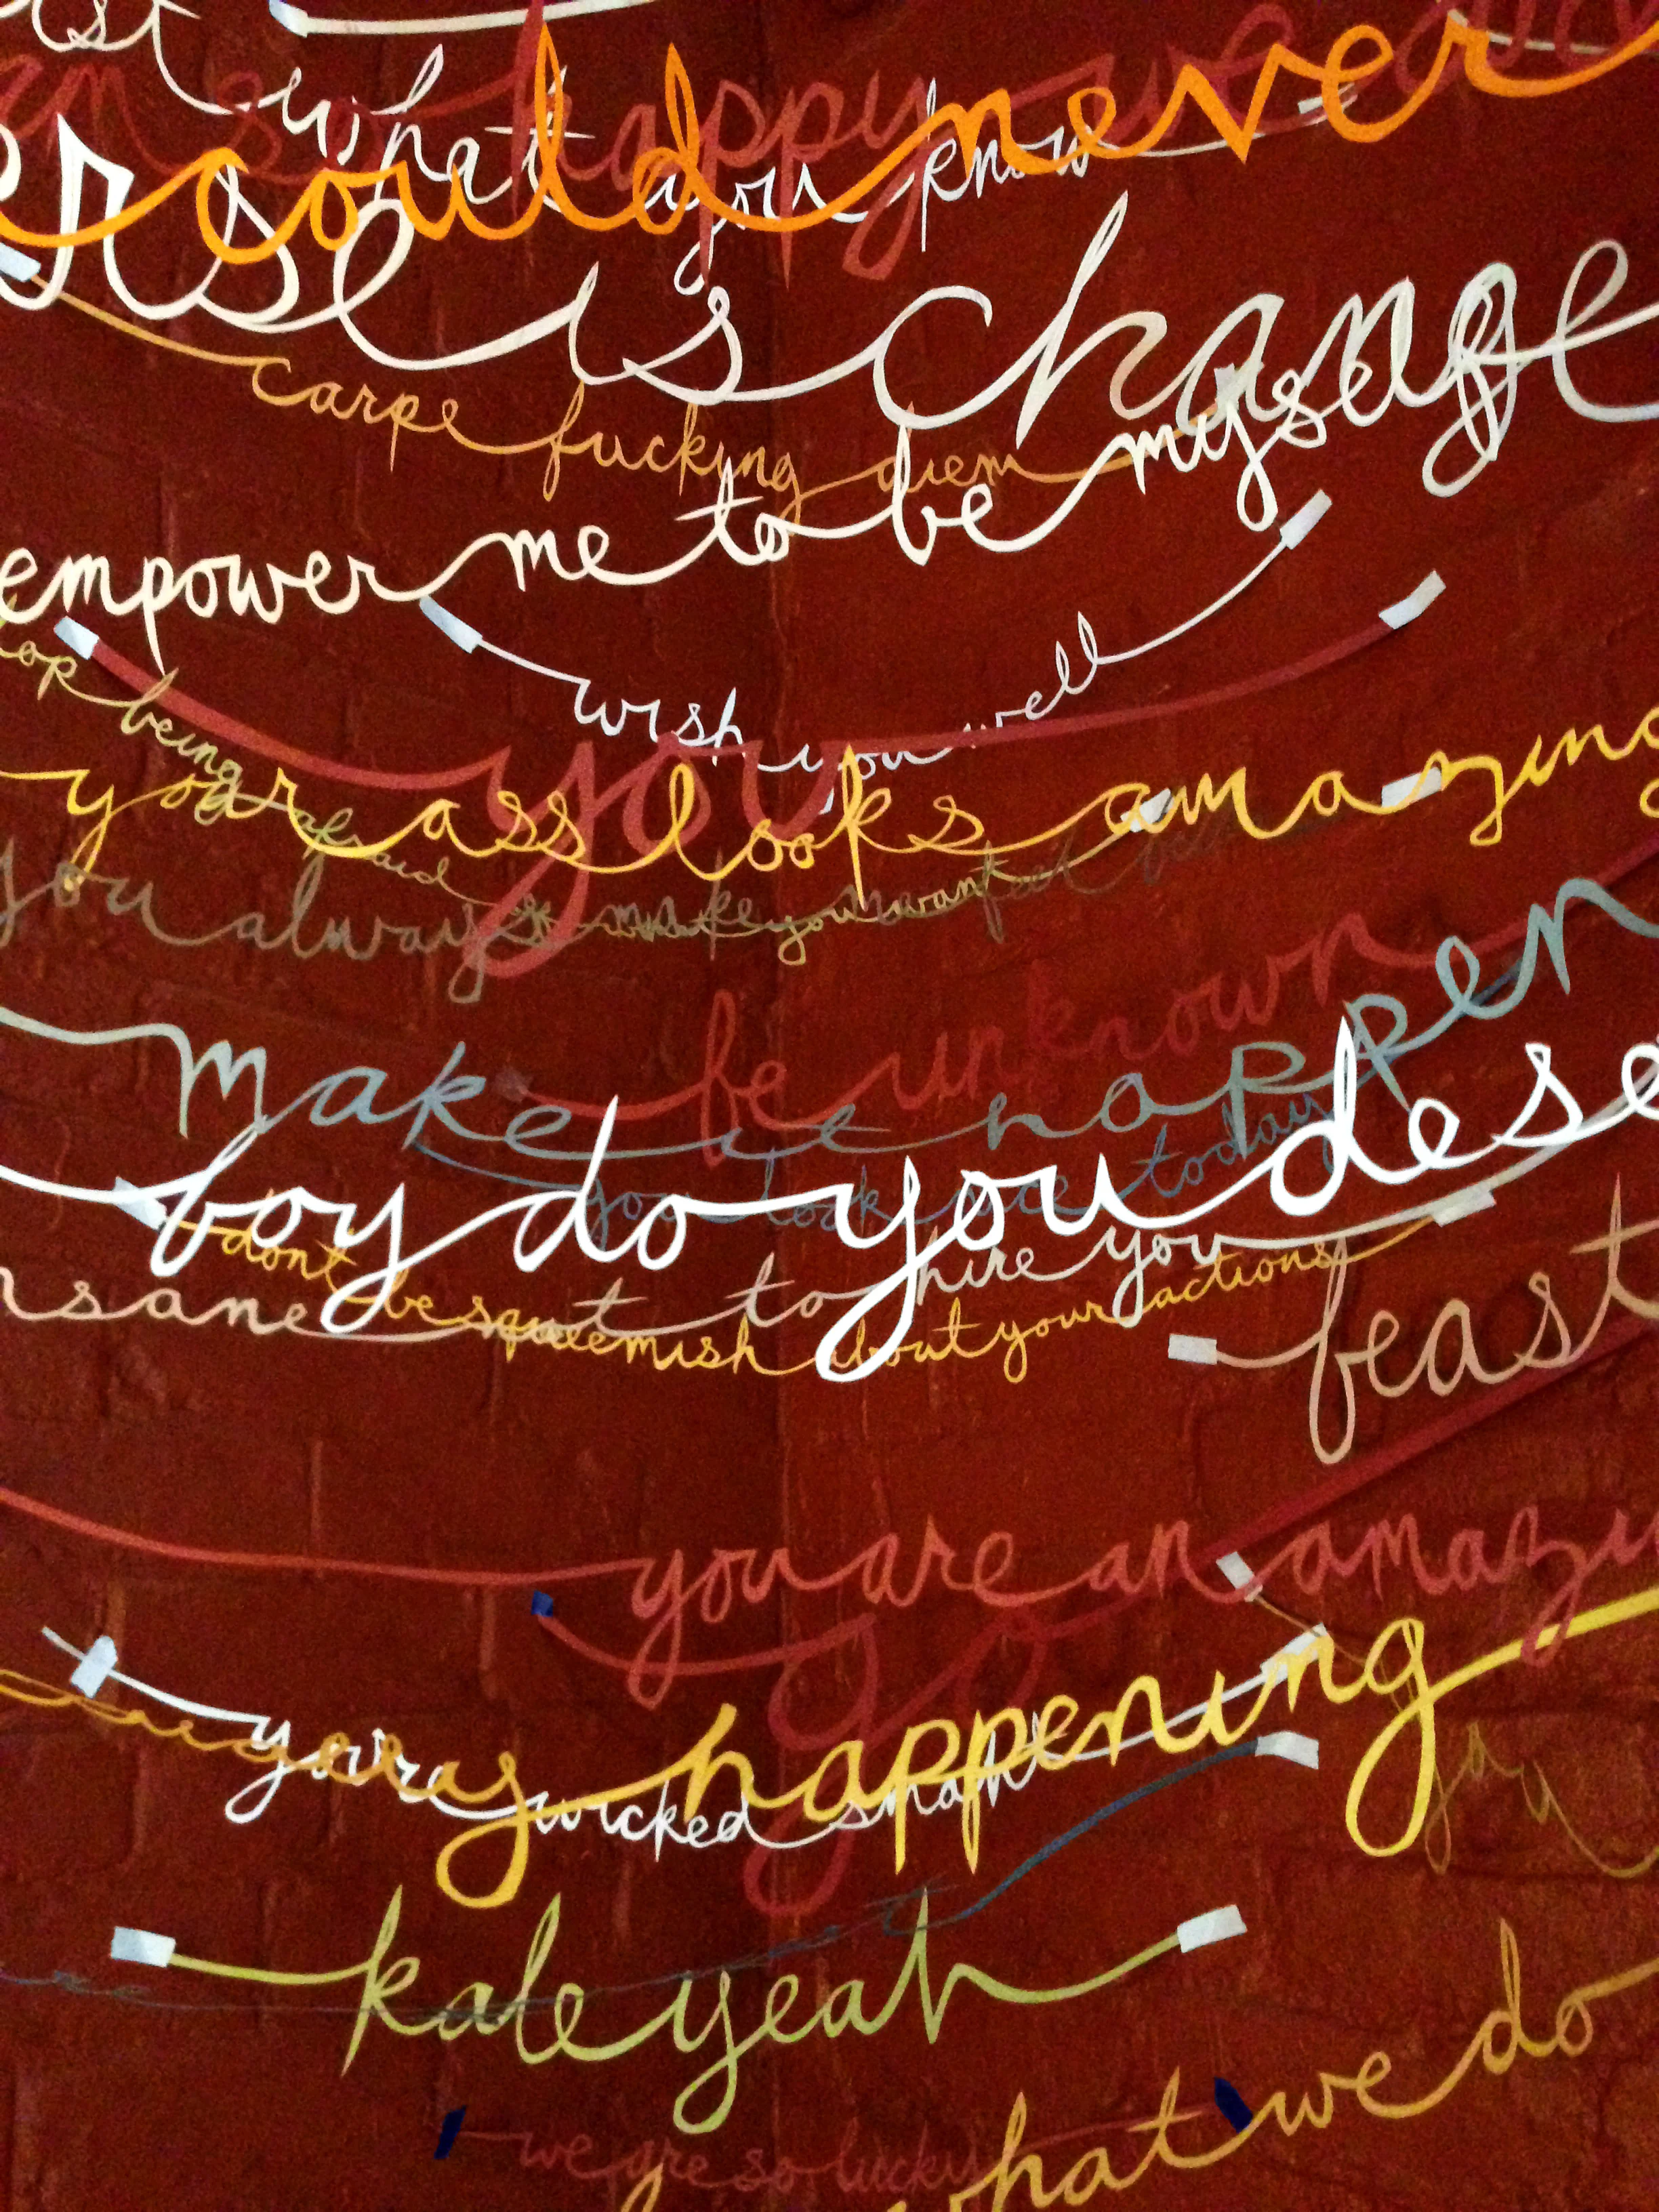 what you know
happy we are
could never
rse is change
carpe fucking diem
empower me to be myself
wish you well
you
op being afraid
your ass looks amazing
you always make you want
be unknown
make it happen
you look nice today
boy do you dese
hire you
dont be squeemish about your actions
feast
you are an amazi
go
happening
your wicked smaht
kale yeah
what we do
we are so lucky